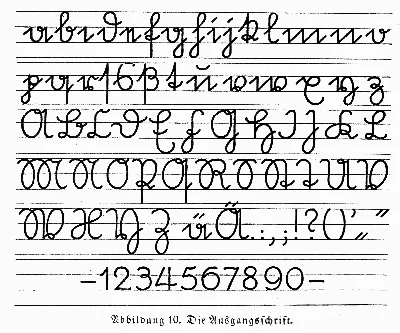 a b c d e f g h i j k l m n o
p q r ſ s ß t u v w x y z
A B C D E F G H I J K L
M N O P Q R S St T U V
W X Y Z ü Ä . : , ; ! ? ( ) ' „ “
–1234567890–
Abbildung 10. Die Ausgangsſchrift.